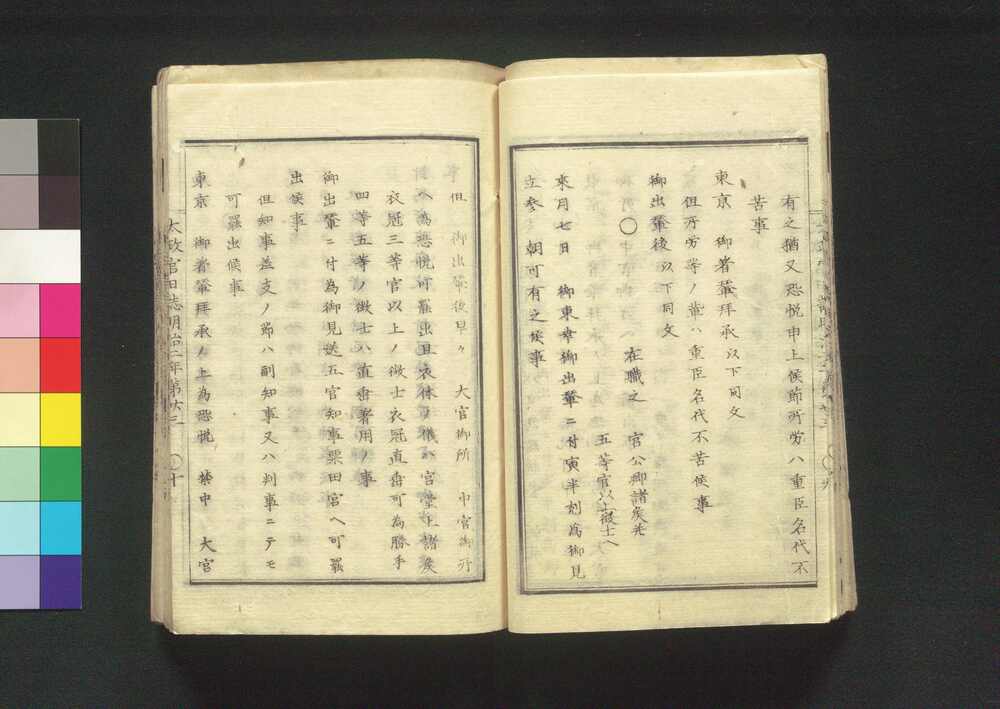 有之猶又恐悦申上候節所労ハ重臣名代不
苦事
東京　御着輦拝承以下同文
但所労等ノ輩ハ重臣名代不苦候事
御出輦後以下同文
〇　在職之　官公卿諸矦并
五等官以上徴士ヘ
来月七日　御東幸御出輦ニ付寅半刻為御見
立参　朝可有之候事
但　御出輦後早々　大宮御所　中宮御所
ヘ為恐悦可罷出且衣体ノ儀ハ宮堂上諸矦
衣冠三等官以上ノ徴士衣冠直垂可為勝手
四等五等ノ徴士ハ直垂著用ノ事
御出輦ニ付為御見送五官知事粟田宮ヘ可罷
出候事
但知事差支ノ節ハ副知事又ハ判事ニテモ
可罷出候事
東京　御着輦拝承ノ上為恐悦　禁中　大宮
太政官日志明治二年第廿三　〇十